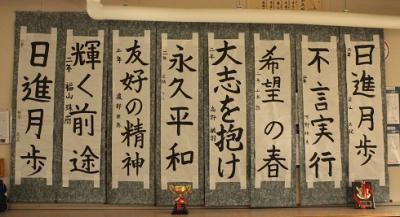 日進月歩
不言実行
希望の春
大志を抱け
永久平和
友好の精神
二年
輝く前途
二年
日進月歩